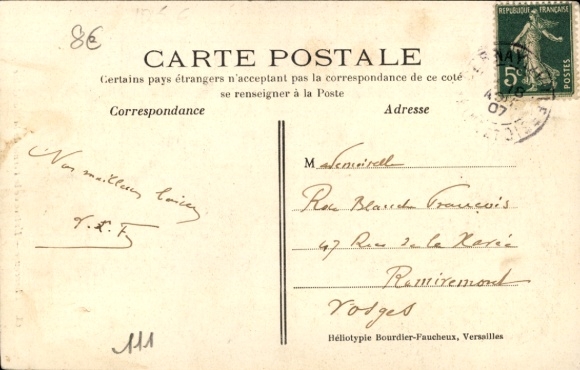 8€
RÉPUBLIQUE FRANÇAISE
5c
POSTES
07
CARTE POSTALE
Certains pays étrangers n'acceptant pas la correspondance de ce coté
se renseigner à la Poste
Correspondance
Adresse
Nos meilleurs
Mademoiselle
Rose Blanche François
47 Rue de la Xavée
Remiremont
Vosges
111
Héliotypie Bourdier-Faucheux, Versailles